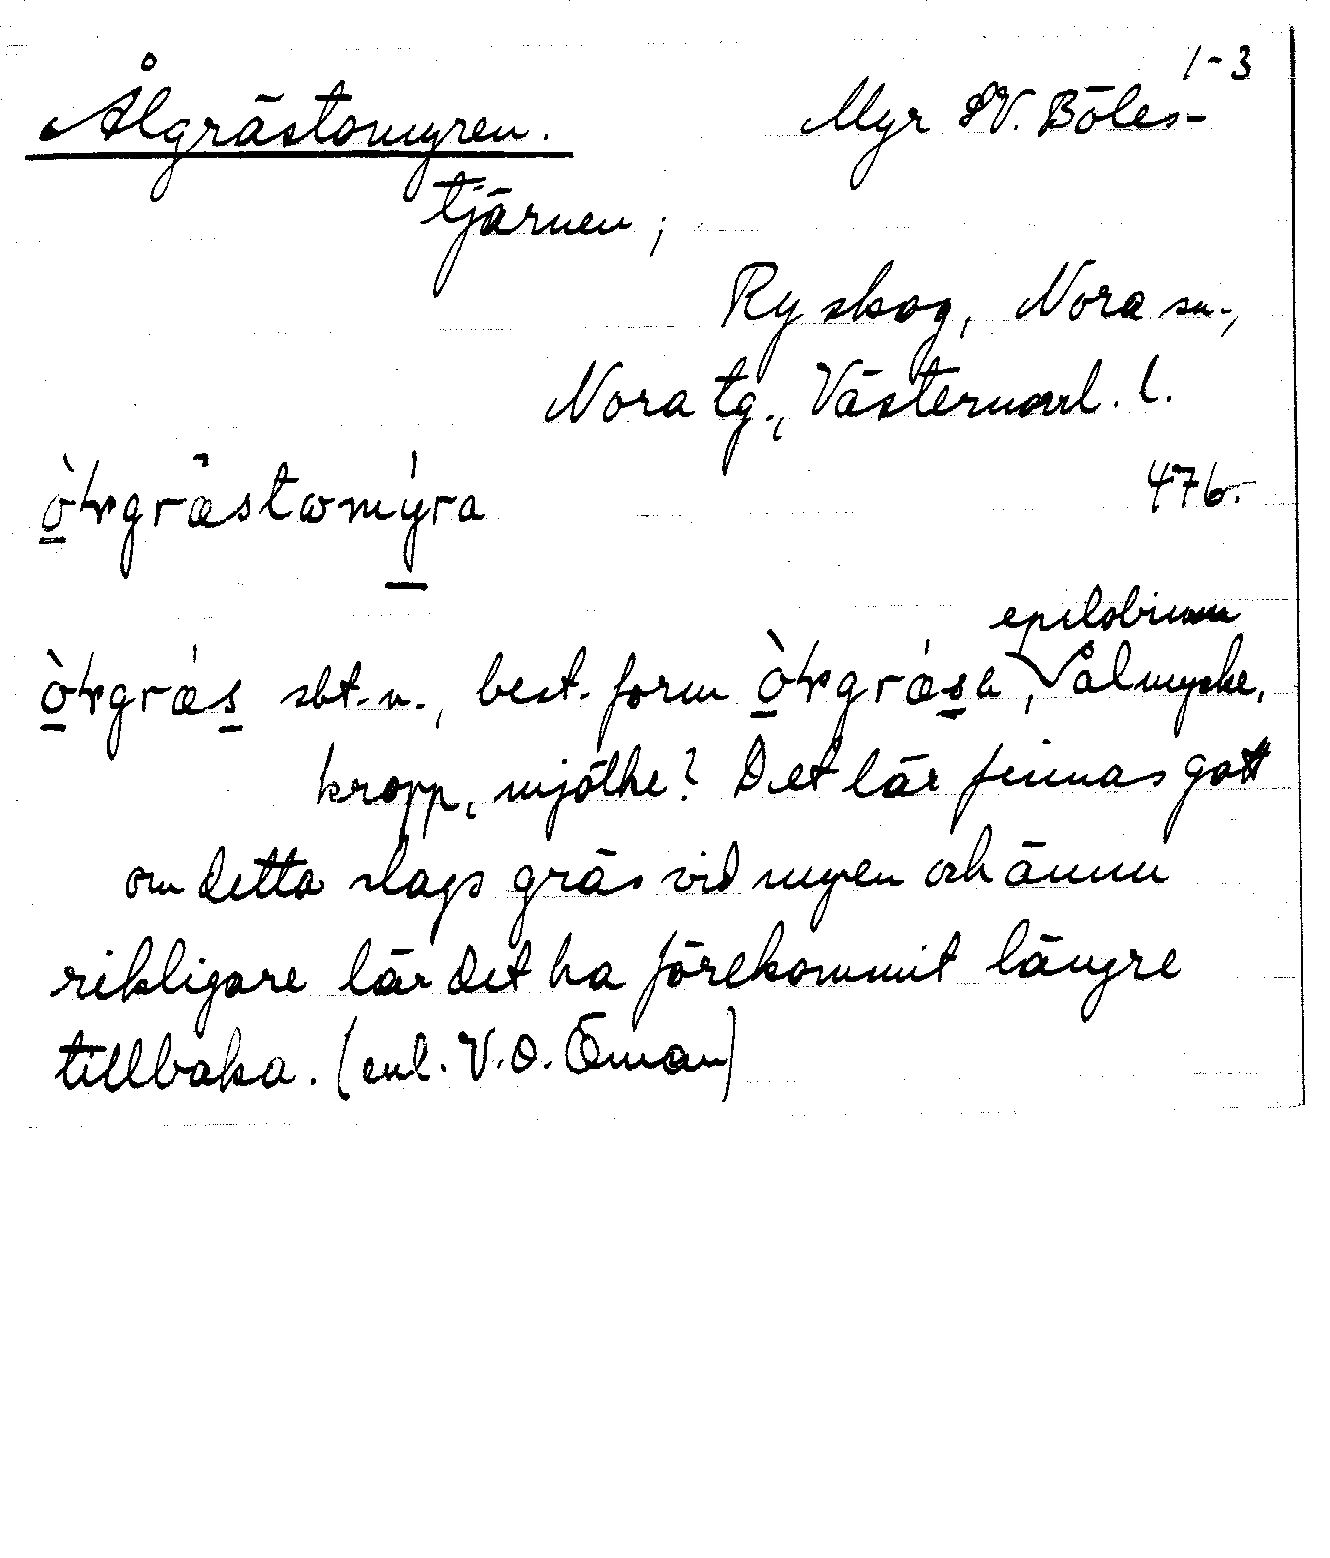 1-3
Ålgrästomyren. Myr SV. Böles-
tjärnen;
Ryskog, Nora sn.,
Nora tg., Västernorrl. l.
476.
epilobium
sbt. n., best. form , ålmyske,
kropp, mjölke? Det lär finnas gott
om detta slags gräs vid myren och ännu
rikligare lär det ha förekommit längre
tillbaka. (enl. V.O. Öman)